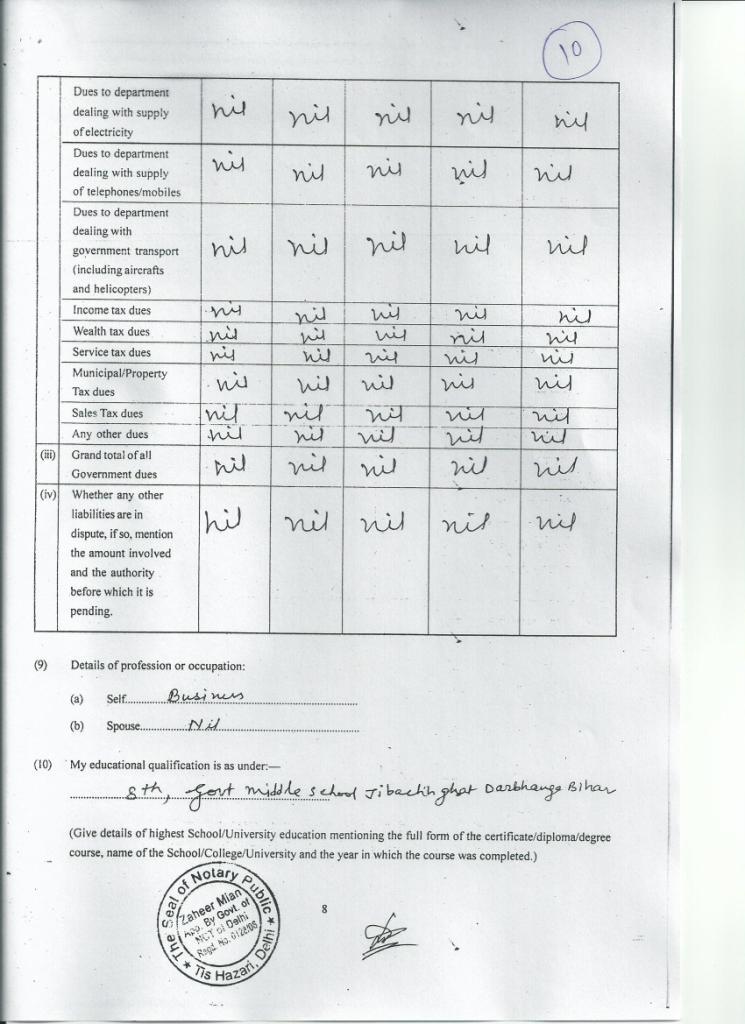 10
Dues to department
dealing with supply
of electricity
nil nil nil nil nil
Dues to department
dealing with supply
of telephones/mobiles
nil nil nil nil nil
Dues to department
dealing with
government transport
(including aircrafts
and helicopters)
nil nil nil nil nil
Income tax dues nil nil nil nil nil
Wealth tax dues nil nil nil nil nil
Service tax dues nil nil nil nil nil
Municipal/Property
Tax dues
nil nil nil nil nil
Sales Tax dues nil nil nil nil nil
Any other dues nil nil nil nil nil
(iii) Grand total of all
Government dues
nil nil nil nil nil
(iv) Whether any other
liabilities are in
dispute, if so, mention
the amount involved
and the authority
before which it is
pending.
nil nil nil nil nil
(9) Details of profession or occupation:
(a) Self Business
(b) Spouse Nil
(10) My educational qualification is as under:—
8th, Govt middle school Darbhanga Bihar
(Give details of highest School/University education mentioning the full form of the certificate/diploma/degree
course, name of the School/College/University and the year in which the course was completed.)
The Seal of Notary Public
Zaheer Mian
App. By Govt. of
NCT of Delhi
Regd. No.
Tis Hazari, Delhi
8